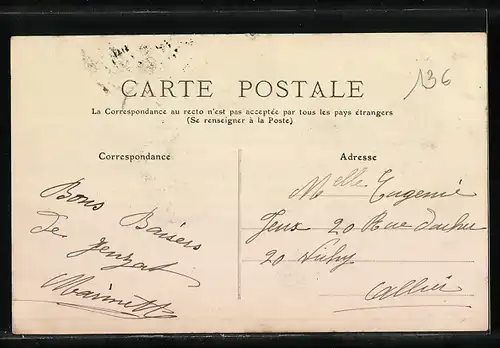 136
CARTE POSTALE
La Correspondance au recto n'est pas acceptée par tous les pays étrangers
(Se renseigner à la Poste)
Correspondance
Adresse
Bons Baisers
De Jenzat
Melle Eugenie
20 Rue
20 Vichy
Allier